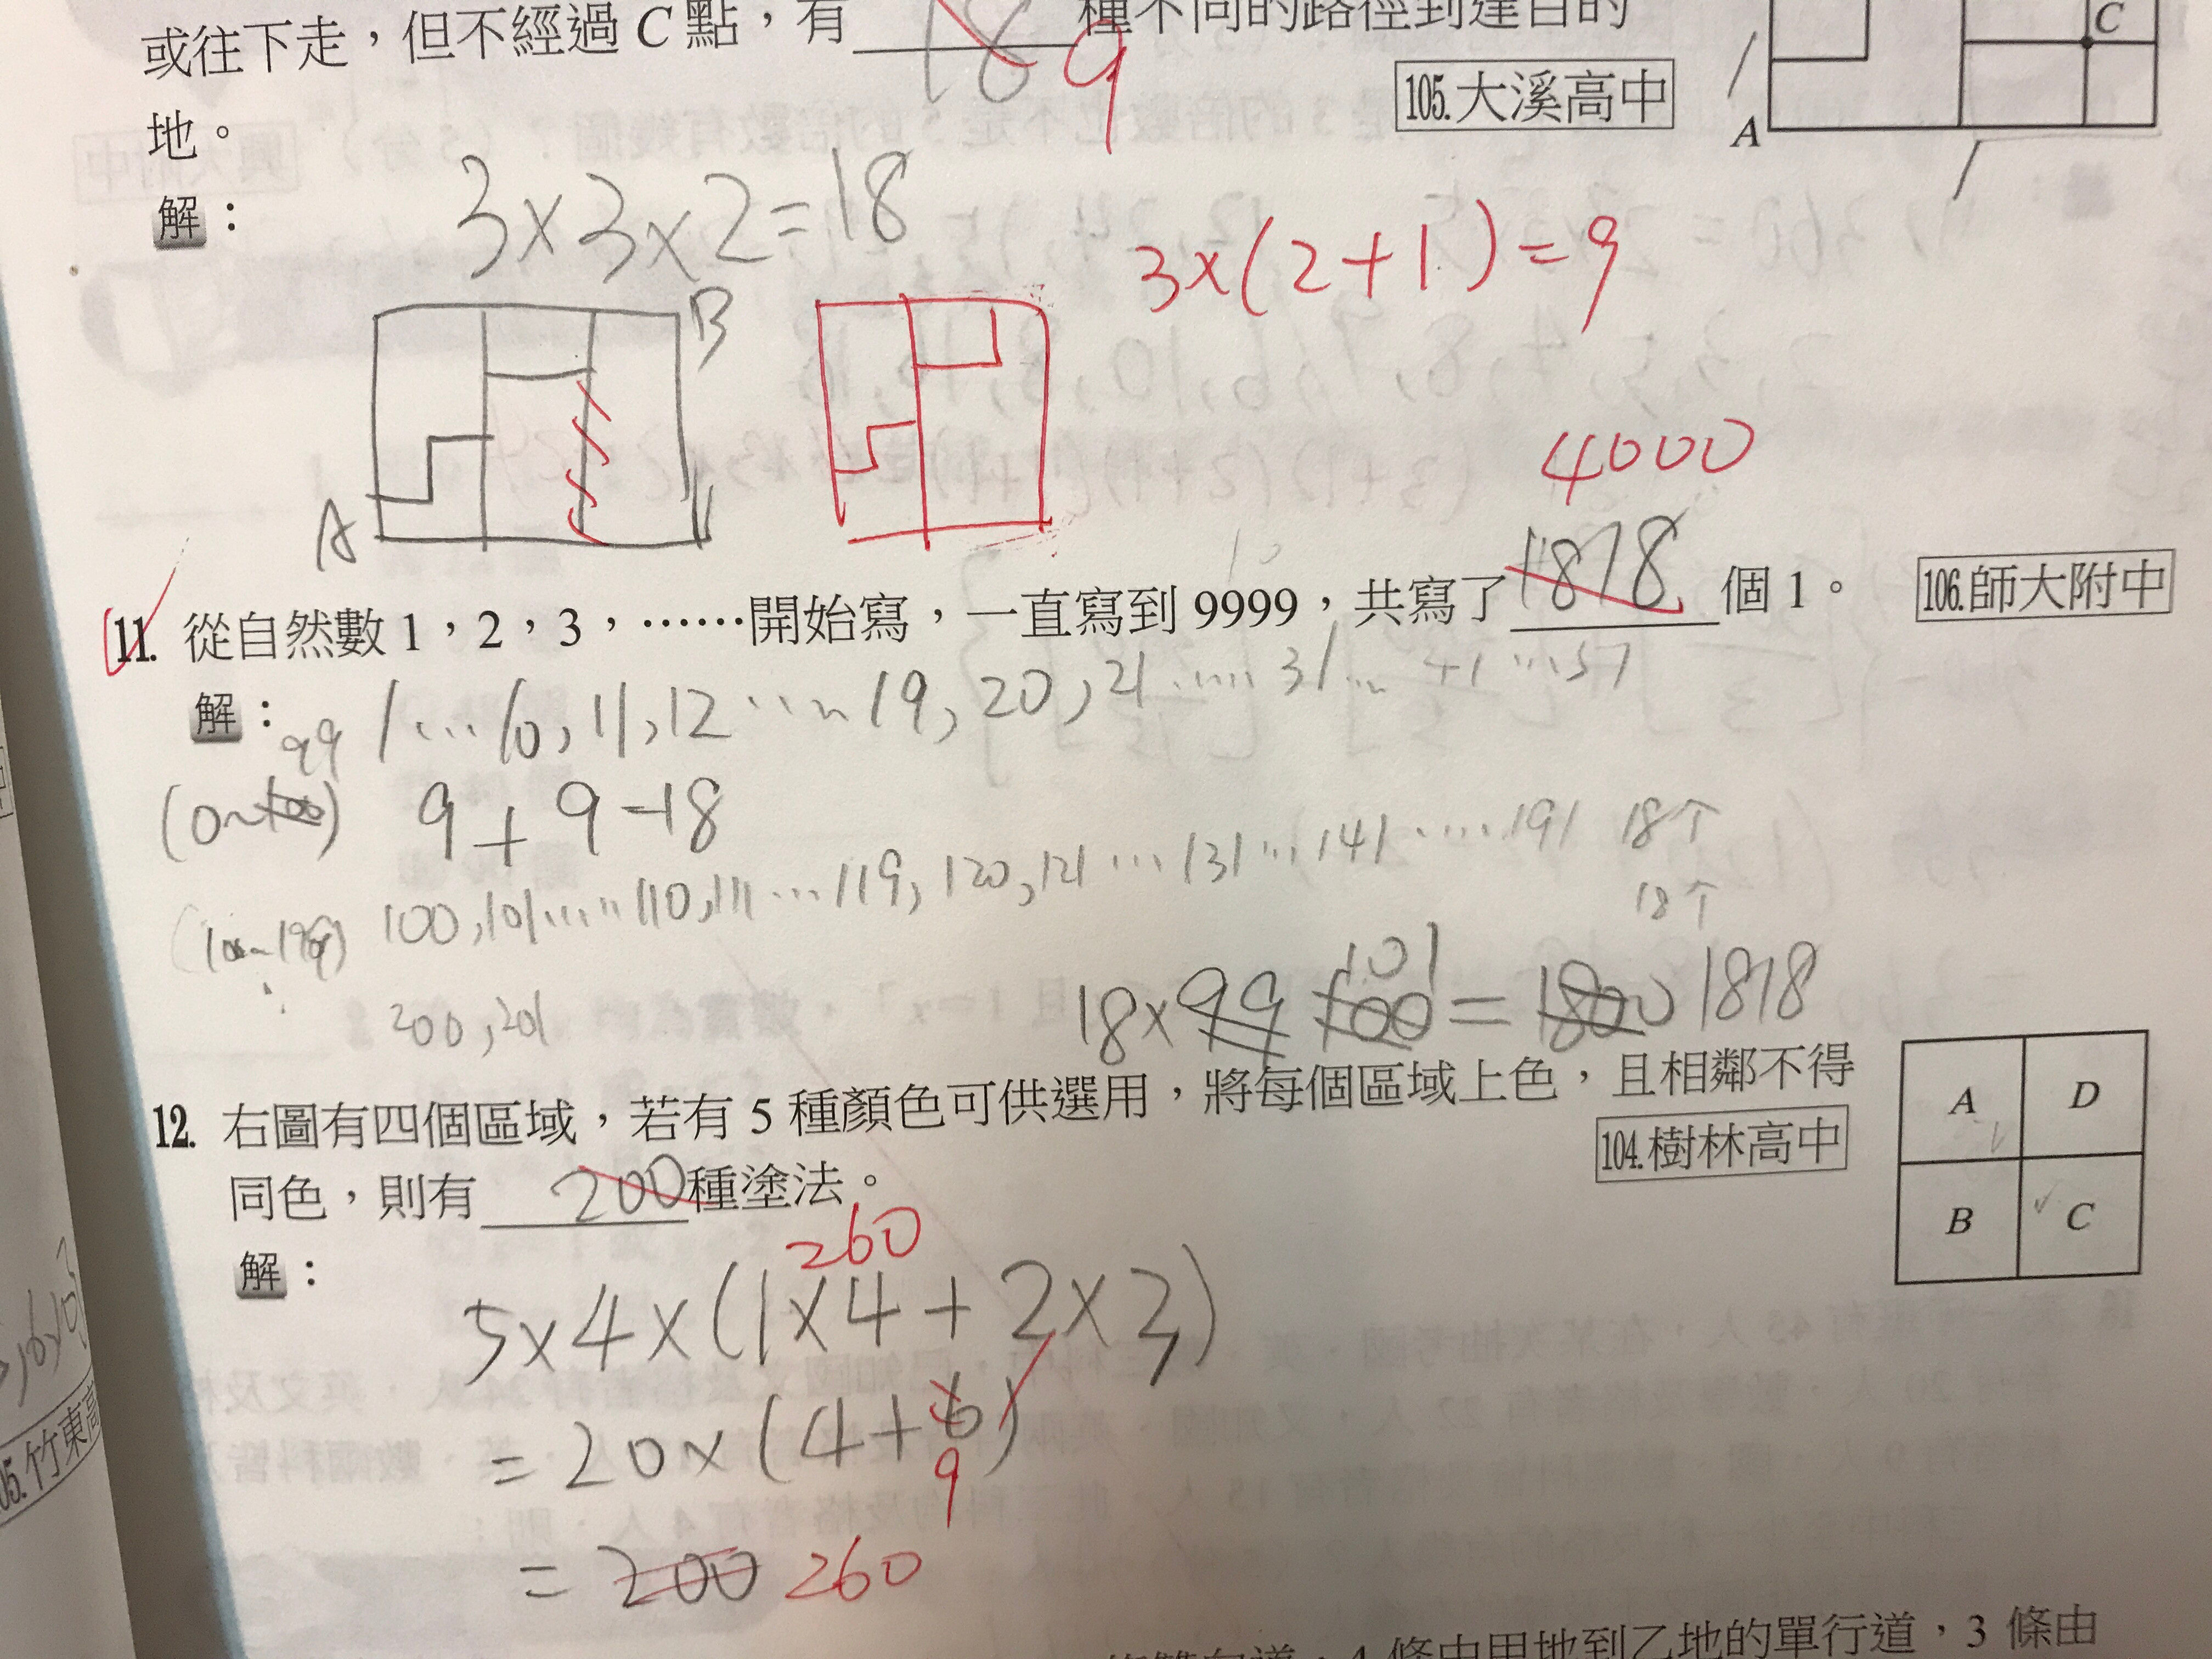 或往下走，但不經過 C 點，有 18 9 種不同的路徑到達目的
地。
105.大溪高中
C
A
解：
3×3×2=18
3×(2+1)=9
B
A
4000
11. 從自然數 1，2，3，……開始寫，一直寫到 9999，共寫了 1878 個 1。
106.師大附中
解：
1...10,11,12...19,20,21.....31... 41...51
99
(0~100) 9+9=18
(100~199) 100,101......110,111...119,120,121...131...141....191 18个
18个
200,201
18×99 100 101=1800 1818
12. 右圖有四個區域，若有 5 種顏色可供選用，將每個區域上色，且相鄰不得
同色，則有 200 種塗法。
260
104.樹林高中
A D
B C
解：
5×4×(1×4+2×3)
=20×(4+6)
9
=200 260
05.竹東高
條由甲地到乙地的單行道，3 條由